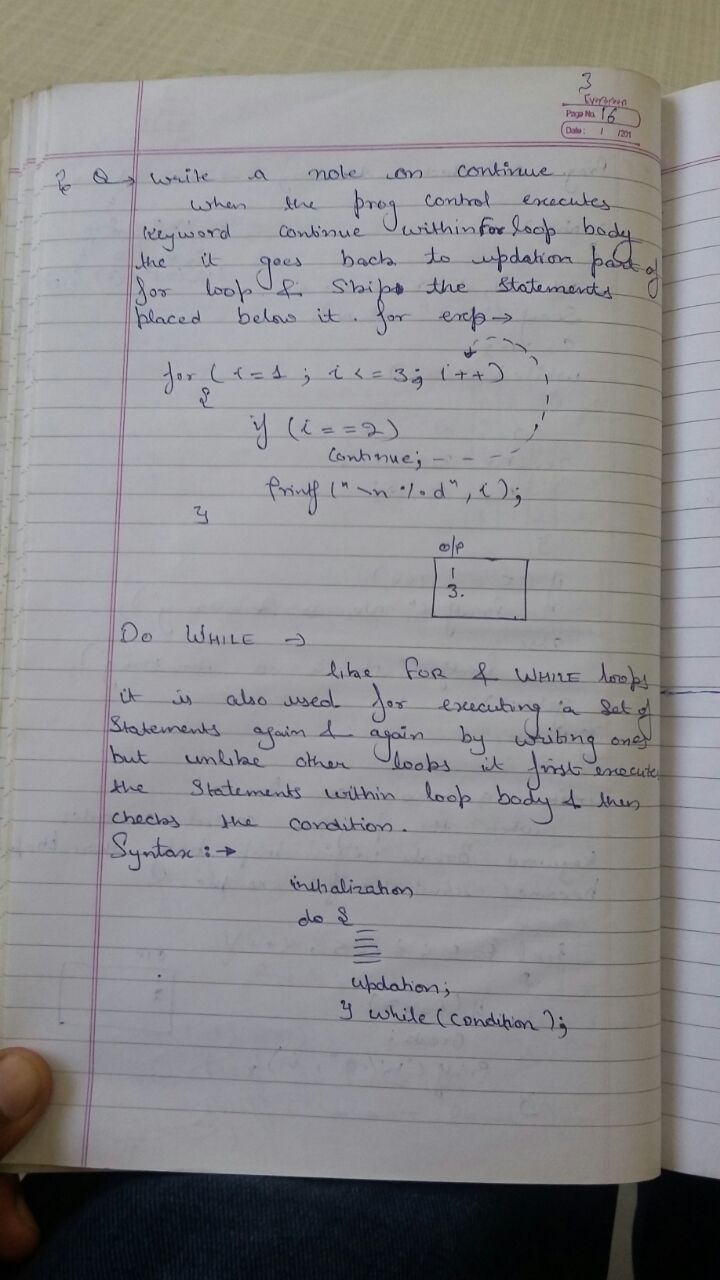 3
Evergreen
Page No. 16
Date: / /201
Q → Write a note on continue
When the prog control executes
keyword continue within for loop body
the it goes back to updation part of
for loop & skips the statements
placed below it. for exp →
for (i=1 ; i<=3; i++)
{
if (i==2)
continue;
printf ("\n %d", i);
}
o/p
1
3.
DO WHILE →
like FOR & WHILE loops
it is also used for executing a set of
statements again & again by writing ones
but unlike other loops it first execute
the statements within loop body & then
checks the condition.
Syntax :→
initialization
do {
updation;
} while (condition);